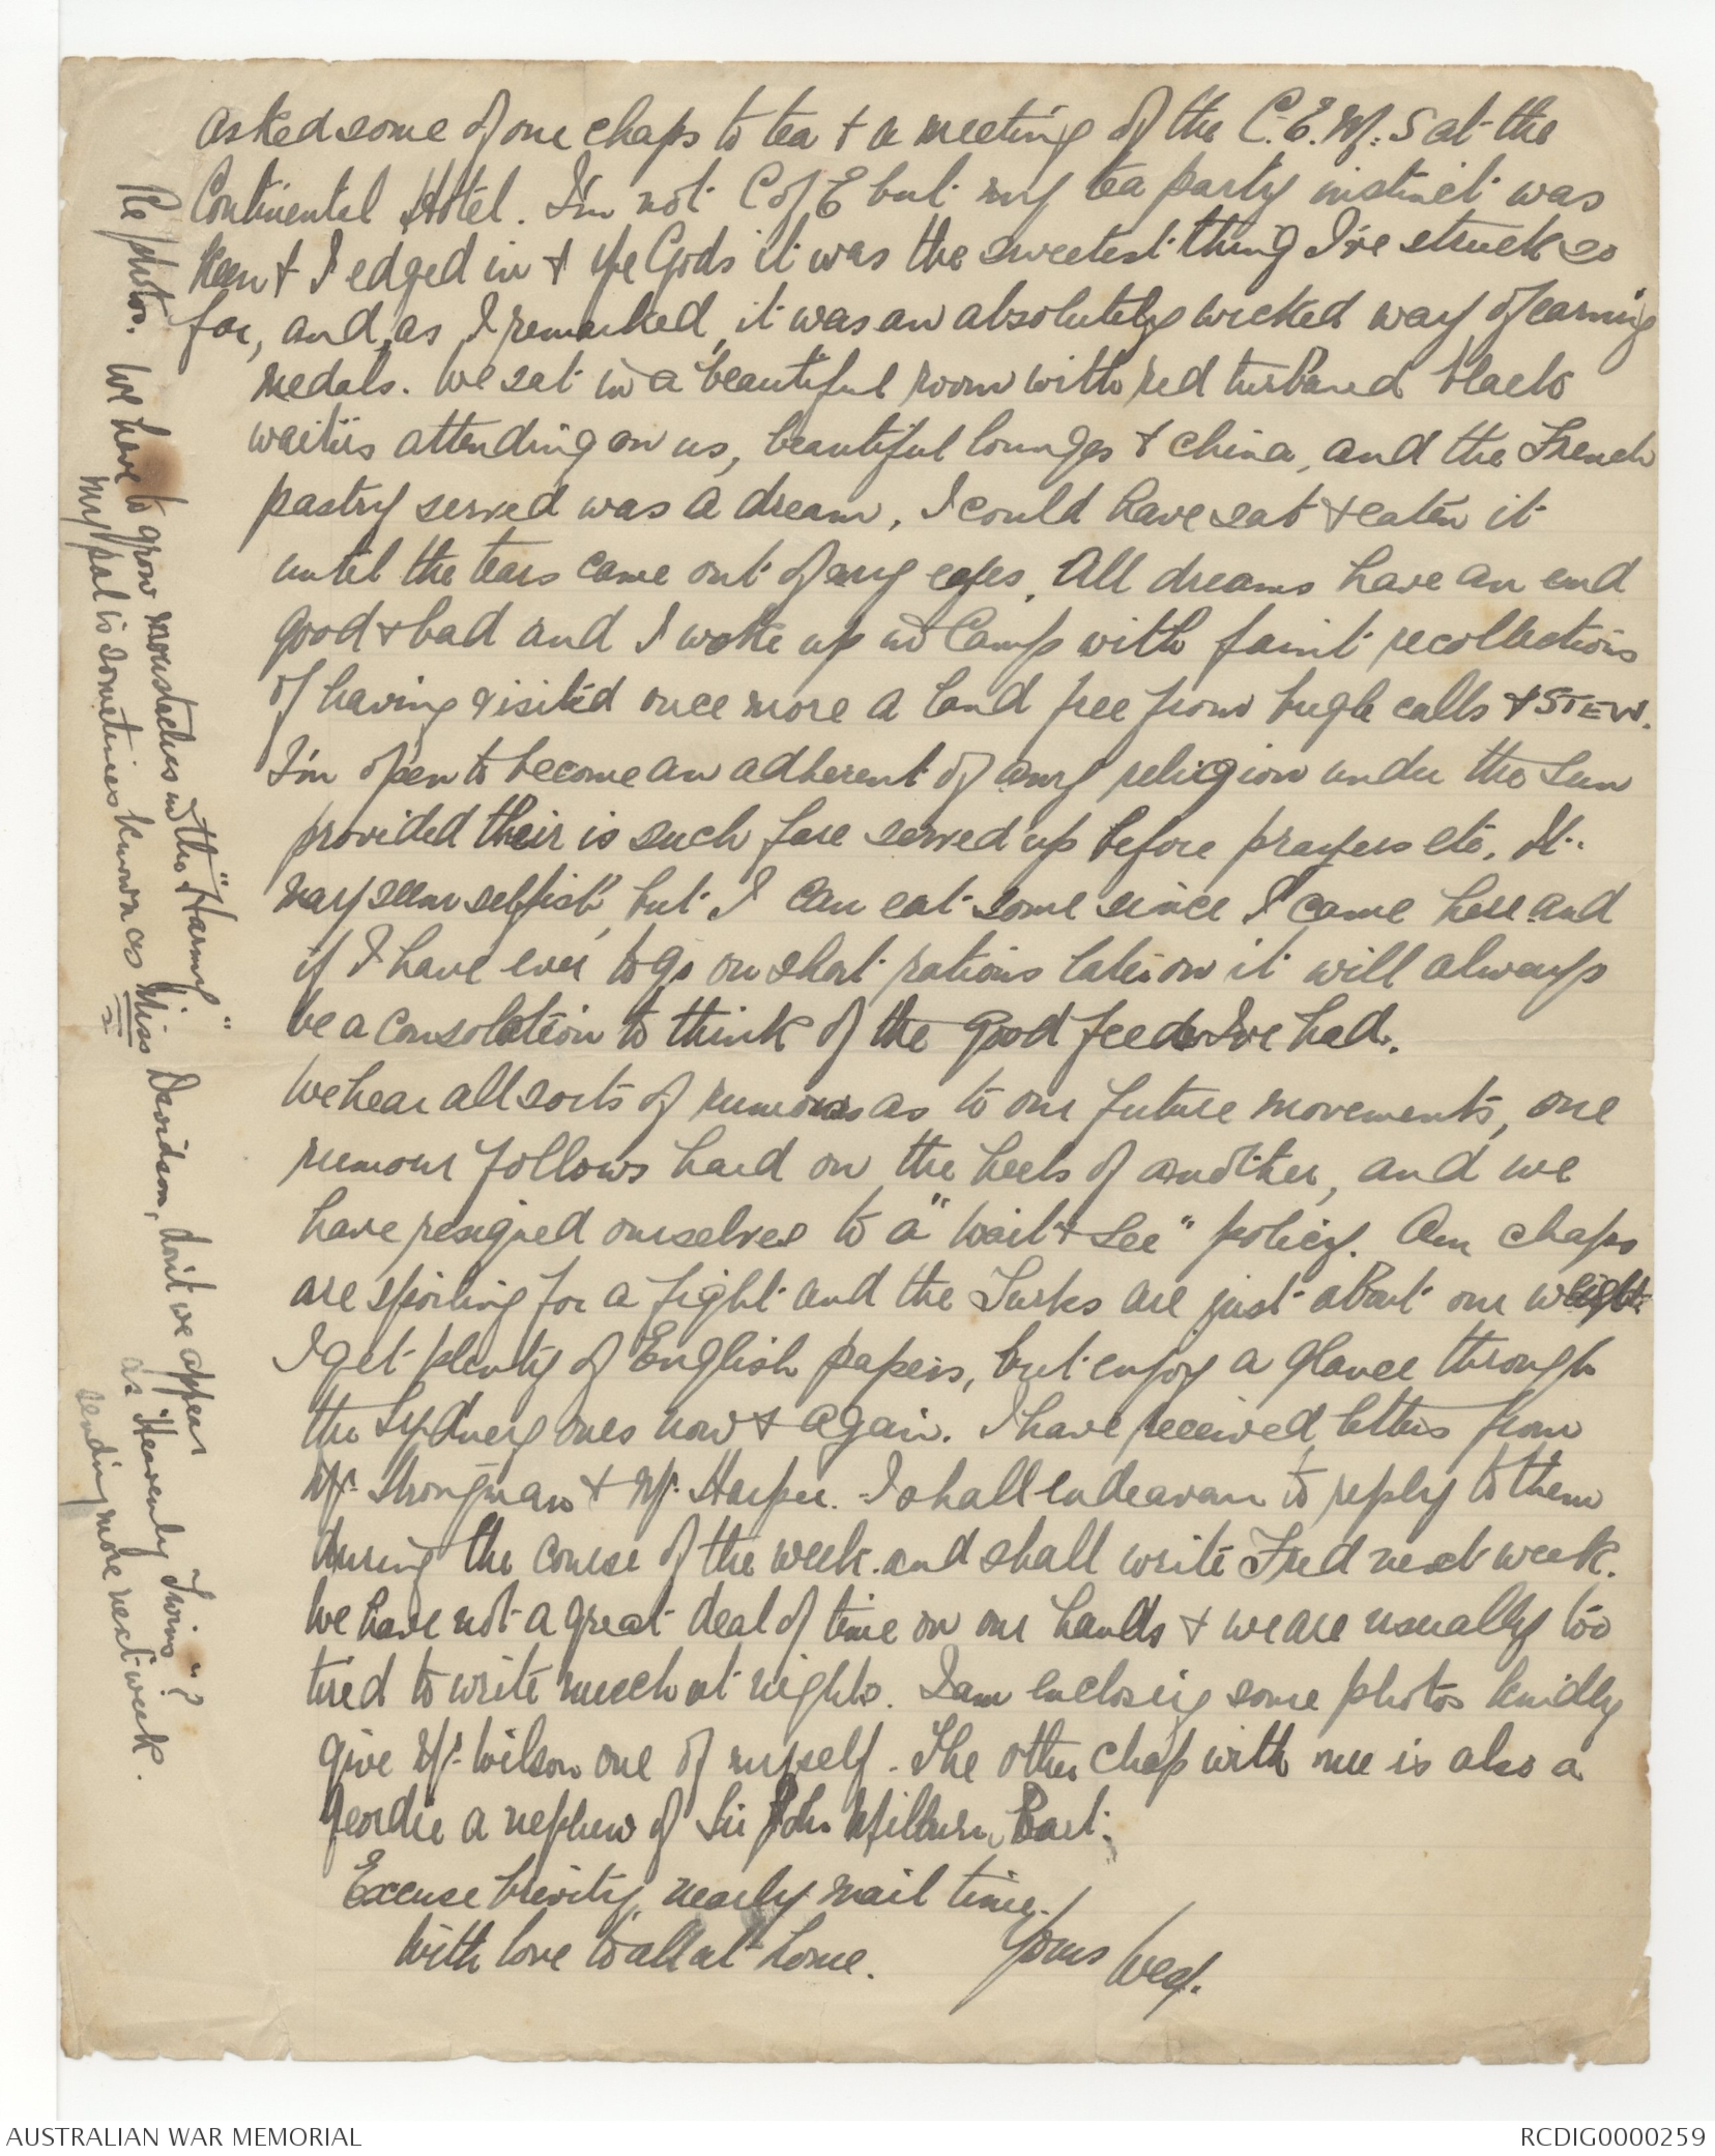 asked some of our chaps to tea & a meeting of the C.E.M.S at the
Continental Hotel. I'm not C of E but my tea party instinct was
keen & I edged in & ye Gods it was the sweetest thing I've struck so
far, and, as I remarked, it was an absolutely wicked way of earning
medals. We sat in a beautiful room with red turbaned black
waiters attending on us, beautiful lounges & china, and the French
pastry served was a dream, I could have sat & eaten it
until the tears came out of my eyes. All dreams have an end
good & bad and I woke up in Camp with faint recollections
of having visited once more a land free from bugle calls & STEW.
I'm open to become an adherent of any religion under the Sun
provided their is such fare served up before prayers etc. It
may seem selfish, but I can eat some since I came here and
if I have ever to go on short rations later on it will always
be a consolation to think of the good feeds I've had.
We hear all sorts of rumours as to our future movements, one
rumour follows hard on the heels of another, and we
have resigned ourselves to a "wait & see" policy. Our chaps
are spoiling for a fight and the Turks are just about our weight.
I get plenty of English papers, but enjoy a glance through
the Sydney ones now & again. I have received letters from
Mr. Strongman & Mr. Harper. I shall endeavour to reply to them
during the course of the week and shall write Fred next week.
We have not a great deal of time on our hands & we are usually too
tired to write much at nights. I am enclosing some photos kindly
give Mr. Wilson one of myself. The other chap with me is also a
Geordie a nephew of Sir John Milburn, Bart.
Excuse brevity, nearly mail time.
With love to all at home. Yours Weg.
Re photos. We have to grow moustaches in the "Harmy"
my pal is sometimes known as Miss Davidson, don't we appear
as "Heavenly Twins"?
sending more next week.
AUSTRALIAN WAR MEMORIAL
RCDIG0000259